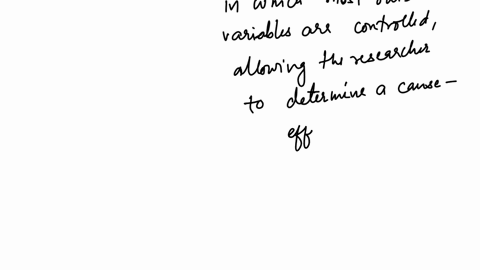 in which most
variables are controlled,
allowing the researcher
to determine a cause-
eff